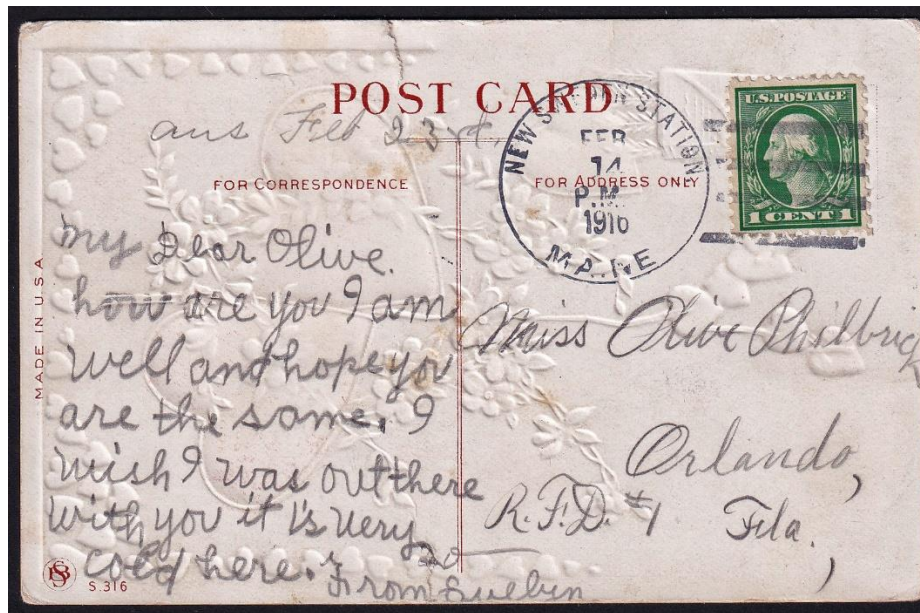 POST CARD
ans Feb 23rd.
FOR CORRESPONDENCE
FOR ADDRESS ONLY
NEW SHARON STATION
FEB
14
P.M.
1916
MAINE
U.S. POSTAGE
1 CENT 1
My Dear Olive.
how are you I am
well and hope you
are the same. I
wish I was out there
with you it is very
cold here.
From
Miss Olive Philbrick
Orlando,
R.F.D. #1 Fla.
MADE IN U.S.A.
S.316